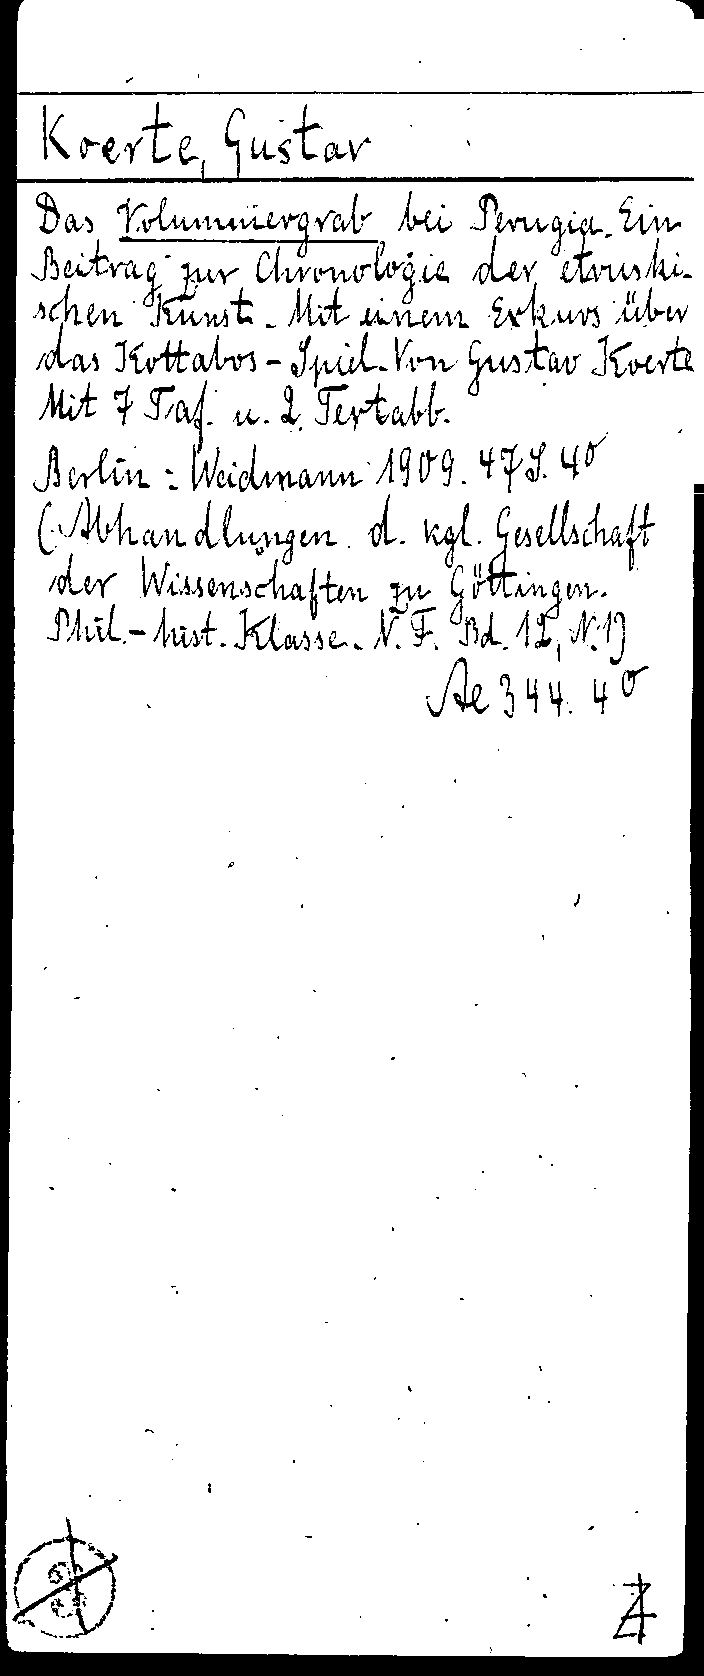 Koerte, Gustav
Das Volumniergrab bei Perugia. Ein
Beitrag zur Chronologie der etruski-
schen Kunst. Mit einem Exkurs über
das Kottabos-Spiel. Von Gustav Koerte
Mit 7 Taf. u. 2 Textabb.
Berlin: Weidmann 1909. 47 S. 4º
(Abhandlungen d. kgl. Gesellschaft
der Wissenschaften zu Göttingen.
Phil.-hist. Klasse. N. F. Bd. 12, N. 1)
Ae 344. 4º